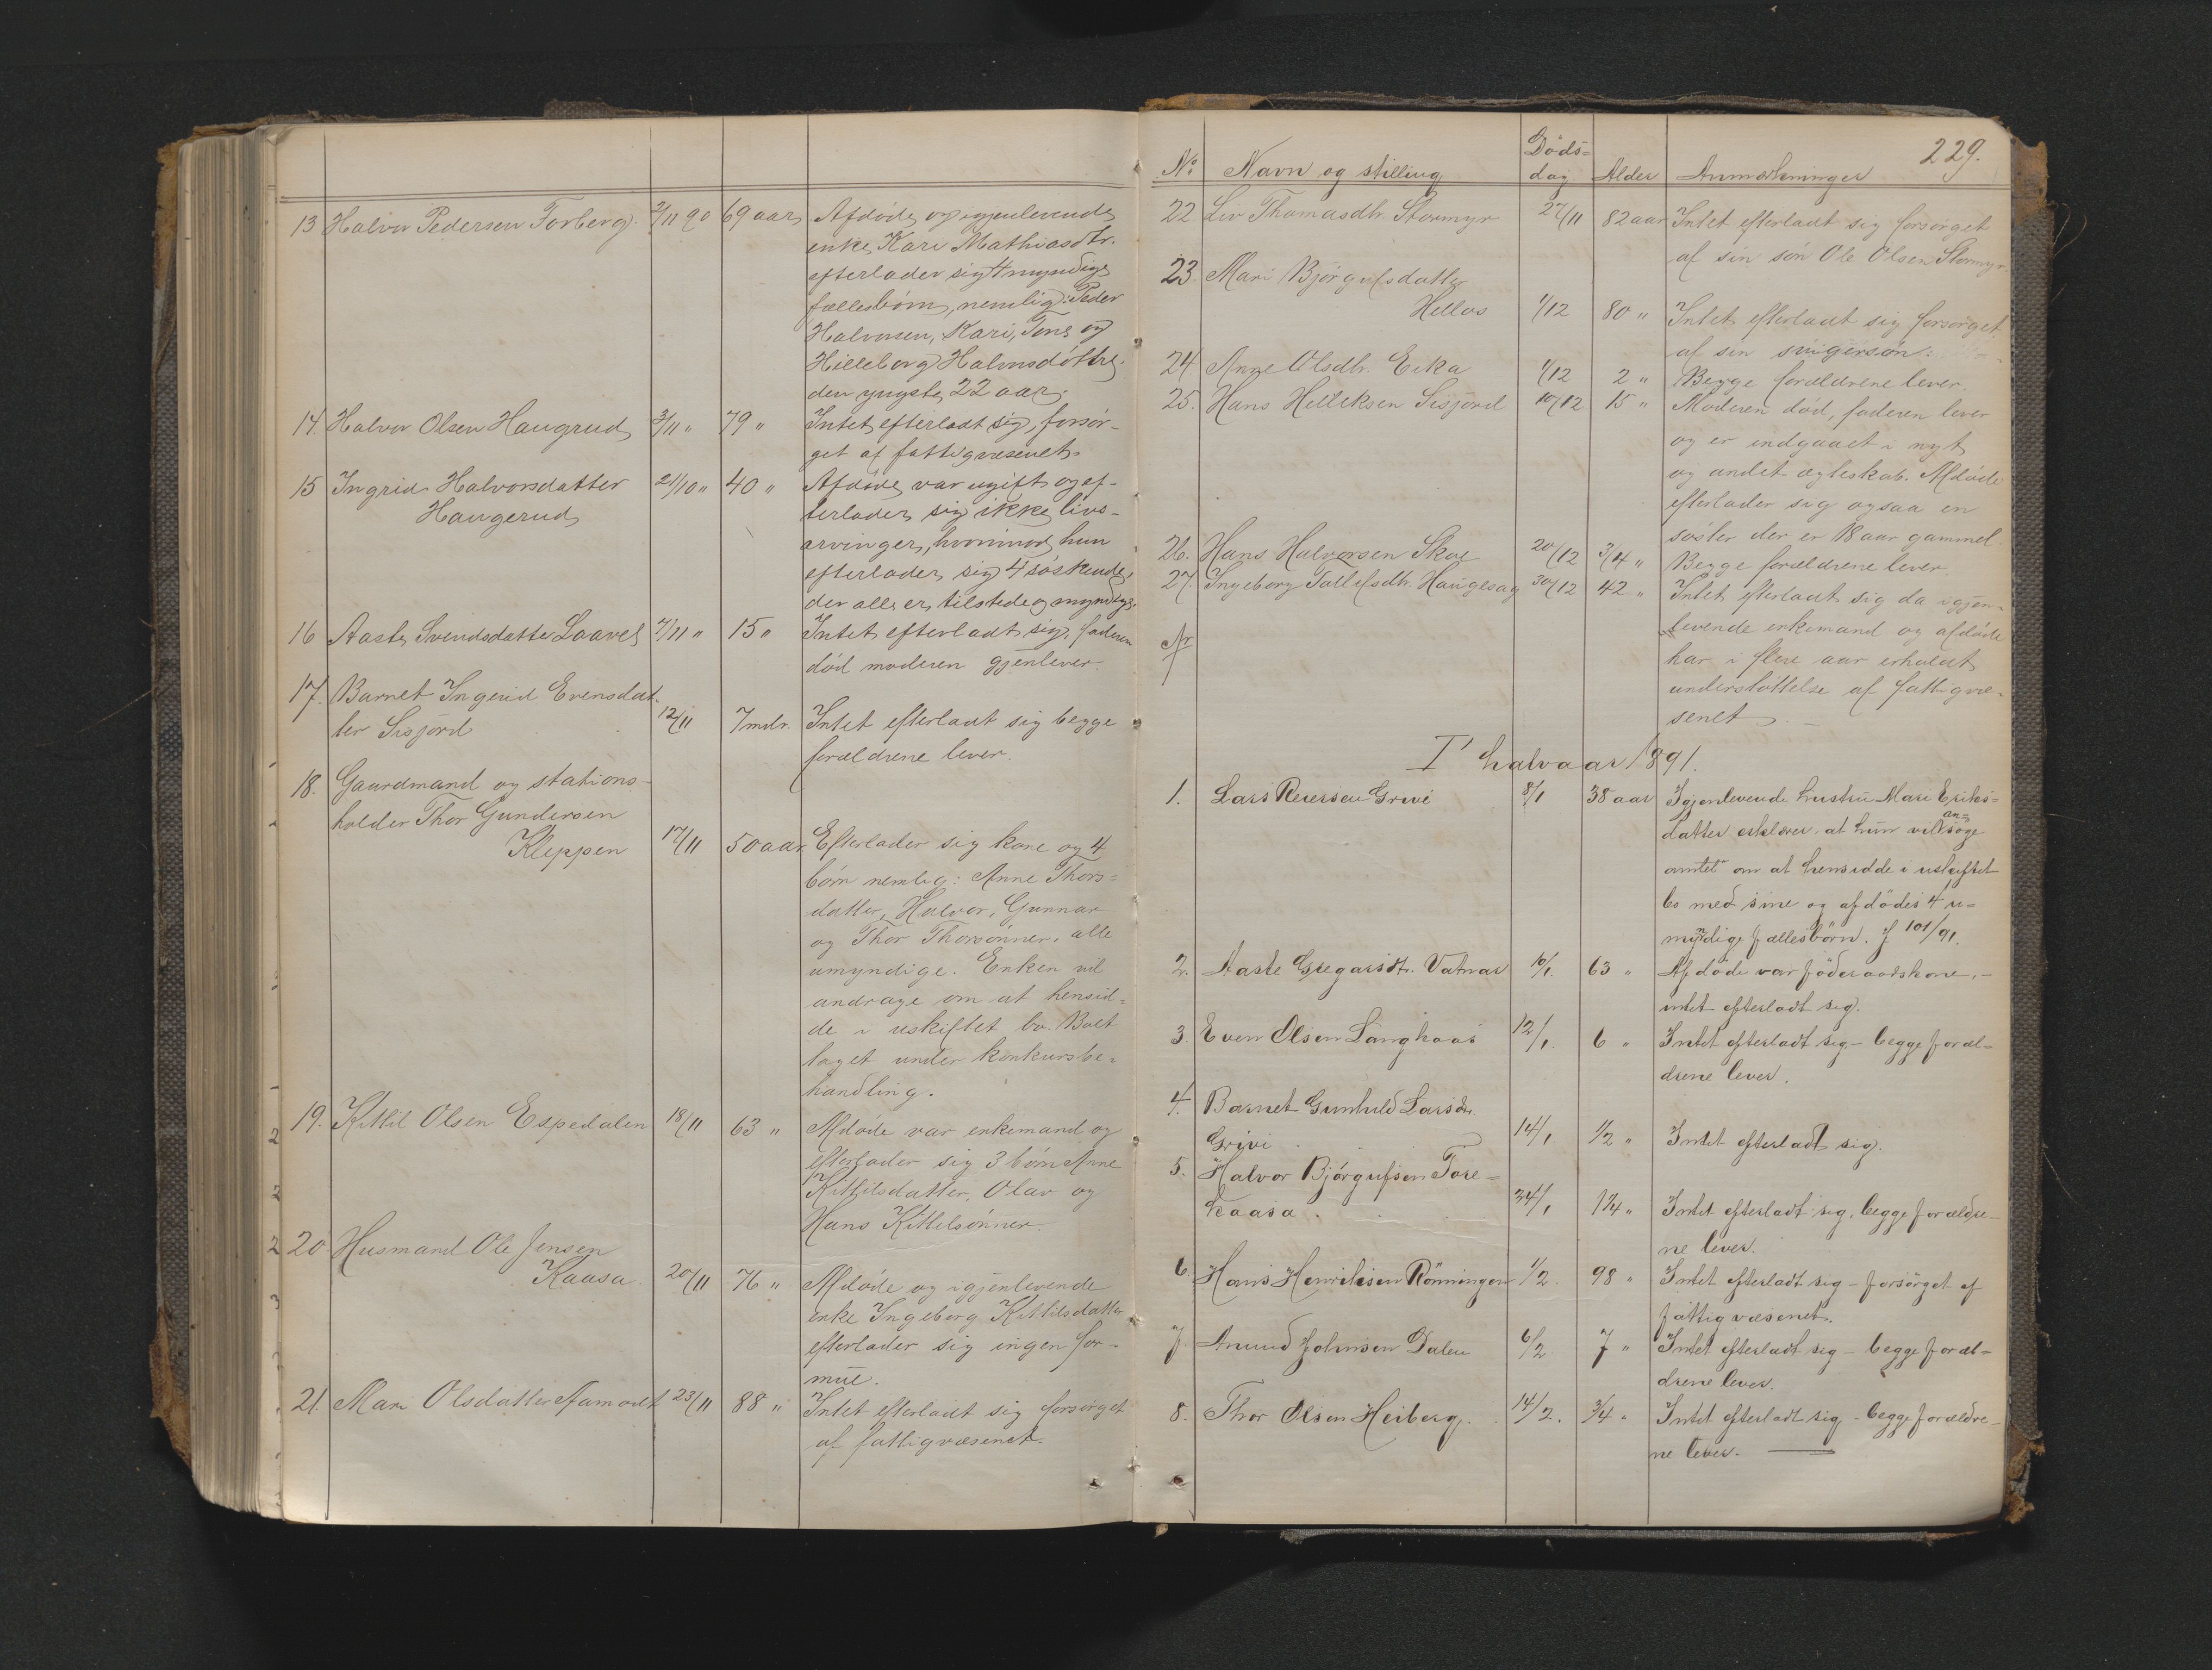 13 Halvor Pedersen Forberg. 2/11 90 69 aar Afdöde og igjenlevende
enke, Kari Mathiasdtr.
efterlader sig 4 myndige
fællesbörn, nemlig: Peder
Halvorsen, Kari, Tone og
Hilleborg Halvorsdöttre,
den yngste 22 aar.
14. Halvor Olsen Haugrud 3/11 " 79 " Intet efterladt sig, forsör-
get af fattigvæsenet.
15 Ingrid Halvorsdatter 21/10 " 40 " Afdöde var ugift og ef-
Haugerud terlader sig ikke livs-
arvinger, hvorimod hun
efterlader sig 4 söskende,
der alle er tilstede og myndige.
16 Aaste Svendsdatter Laavel 7/11 " 15 " Intet efterladt sig, faderen
död moderen gjenlever.
17. Barnet Ingerid Evensdat-
ter Sisjord 12/11 7 mdr. Intet efterladt sig begge
forældrene lever.
18. Gaardmand og stations-
holder Thor Gundersen
Kleppen 17/11 50 aar Efterlader sig kone og 4
börn nemlig: Anne Thors-
datter, Halvor, Gunnar
og Thor Thorsönner, alle
umyndige. Enken vil
andrage om at hensid-
de i uskiftet bo. Boet
taget under konkursbe-
handling.
19. Kittil Olsen Espedalen 18/11 63 " Afdöde var enkemand og
efterlader sig 3 börn Anne
Kittilsdatter, Olav og
Hans Kittilsönner.
20 Husmand Ole Jensen
Kaasa. 20/11 76 " Afdöde og igjenlevende
enke Ingeborg Kittilsdatter
efterlader sig ingen for-
mue.
21. Mari Olsdatter Aamodt 23/11 88 " Intet efterladt sig forsörget
af fattigvæsenet.
229.
No Navn og stilling Döds-
dag Alder Anmærkninger
22 Liv Thomasdtr. Stormyr 27/11 82 aar Intet efterladt sig forsörget
af sin sön Ole Olsen Stormyr.
23. Mari Björgulfsdatter
Hellos 1/12 80 " Intet efterladt sig forsörget
af sin svigersön.
24 Anne Olsdtr. Eika 1/12 2 " Begge forældrene lever.
25. Hans Helleksen Sisjord 10/12 15 " Moderen död, faderen lever
og er indgaaet i nyt
og andet ægteskab. Afdöde
efterlader sig ogsaa en
söster der er 18 aar gammel.
26. Hans Halvorsen Skoe 20/12 3/4 " Begge forældrene lever
27. Ingeborg Tallefsdtr. Haugesag 30/12 42 " Intet efterladt sig da igjen-
levende enkemand og afdöde
har i flere aar erholdt
understöttelse af fattigvæ-
senet.
I' halvaar 1891.
1. Lars Reiersen Grivi 8/1 38 aar Igjenlevende hustru Mari Eriks-
datter erklærer at hun vil an-
söge
amtet om at hensidde i uskiftet
bo med sine og afdödes 4 u-
myndige fællesbörn. J 101/91.
2. Aaste Gregarsdtr. Vatnar 10/1. 63 " Afdöde var föderaadskone, -
intet efterladt sig.
3. Even Olsen Langkaas 12/1. 6 " Intet efterladt sig - begge foræl-
drene lever.
4. Barnet Gunhild Larsdtr.
Grivi 14/1 1/2 " Intet efterladt sig.
5. Halvor Björgufsen Tore-
kaasa. 24/1 1 1/4 " Intet efterladt sig, begge forældre-
ne lever.
6. Hans Henriksen Rönningen 1/2. 98 " Intet efterladt sig - forsörget af
fattigvæsenet.
7. Amund Johnsen Dalen 6/2 7 " Intet efterladt sig - begge foræl-
drene lever.
8. Thor Olsen Heiberg. 14/2. 3/4 " Intet efterladt sig - begge forældre-
ne lever.